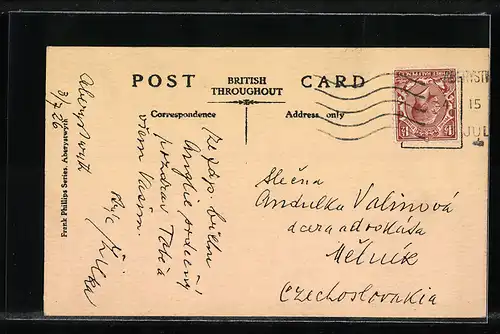 POST CARD
BRITISH
THROUGHOUT
Correspondence
Address only
Frank Phillips Series. Aberystwyth
Aberystwyth
3/7 26
Ze záp. břehu
Anglie srdečný
pozdrav Tobě a
všem Vašim.
Slečna
Andulka Valinová
dcera advokáta
Mělník
Czechoslovakia
ABERYSTW
15
JUL